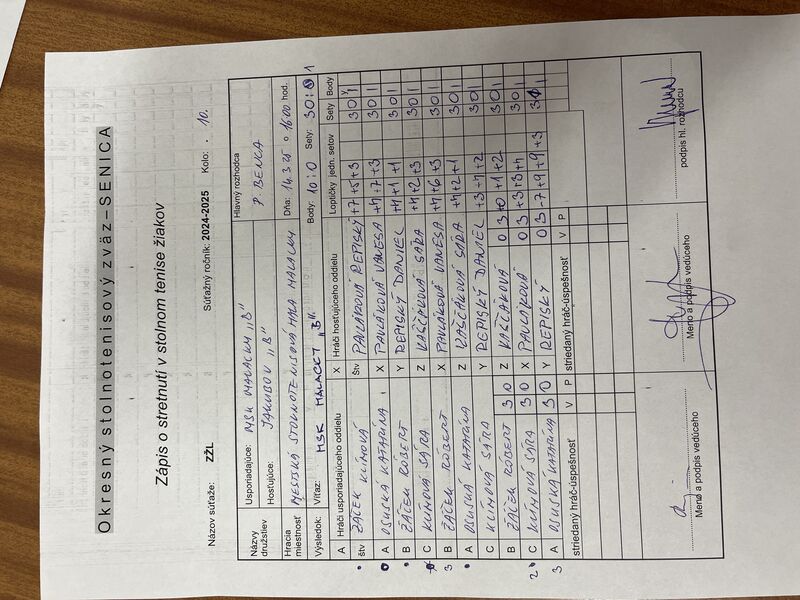 Okresný stolnotenisový zväz – SENICA
Zápis o stretnutí v stolnom tenise žiakov
Názov súťaže: ZŽL Súťažný ročník: 2024-2025 Kolo: 10.
Názvy družstiev Usporiadajúce: MSK MALACKY "B" Hlavný rozhodca
Hosťujúce: JAKUBOV "B" P. BENKA
Hracia miestnosť MESTSKÁ STOLNOTENISOVÁ HALA MALACKY Dňa: 14.3.25 o 1600 hod.
Výsledok: Víťaz: MSK MALACKY "B" Body: 10:0 Sety: 30:1
A Hráči usporiadajúceho oddielu X Hráči hosťujúceho oddielu Loptičky jedn. setov Sety Body
štv ŽÁČEK KLÍNOVÁ štv PAVLÁKOVÁ REPISKÝ +7 +5 +3 30 1
A OSUSKÁ KATARÍNA X PAVLÁKOVÁ VANESA +4 +7 +3 30 1
B ŽÁČEK RÓBERT Y REPISKÝ DANIEL +4 +1 +1 30 1
C KLÍNOVÁ SÁRA Z VAŠČÁKOVÁ SÁRA +4 +2 +3 30 1
3 B ŽÁČEK RÓBERT X PAVLÁKOVÁ VANESA +4 +6 +3 30 1
A OSUSKÁ KATARÍNA Z VAŠČÁKOVÁ SÁRA +4 +2 +1 30 1
C KLÍNOVÁ SÁRA Y REPISKÝ DANIEL +3 +4 +2 30 1
B ŽÁČEK RÓBERT 3 0 Z VAŠČÁKOVÁ 0 3 +0 +1 +2 30 1
2 C KLÍNOVÁ SÁRA 3 0 X PAVLÁKOVÁ 0 3 +3 +3 +4 30 1
3 A OSUSKÁ KATARÍNA 3 0 Y REPISKÝ 0 3 -7 +9 +9 +3 31 1
striedaný hráč-úspešnosť V P striedaný hráč-úspešnosť V P
Meno a podpis vedúceho Meno a podpis vedúceho podpis hl. rozhodcu